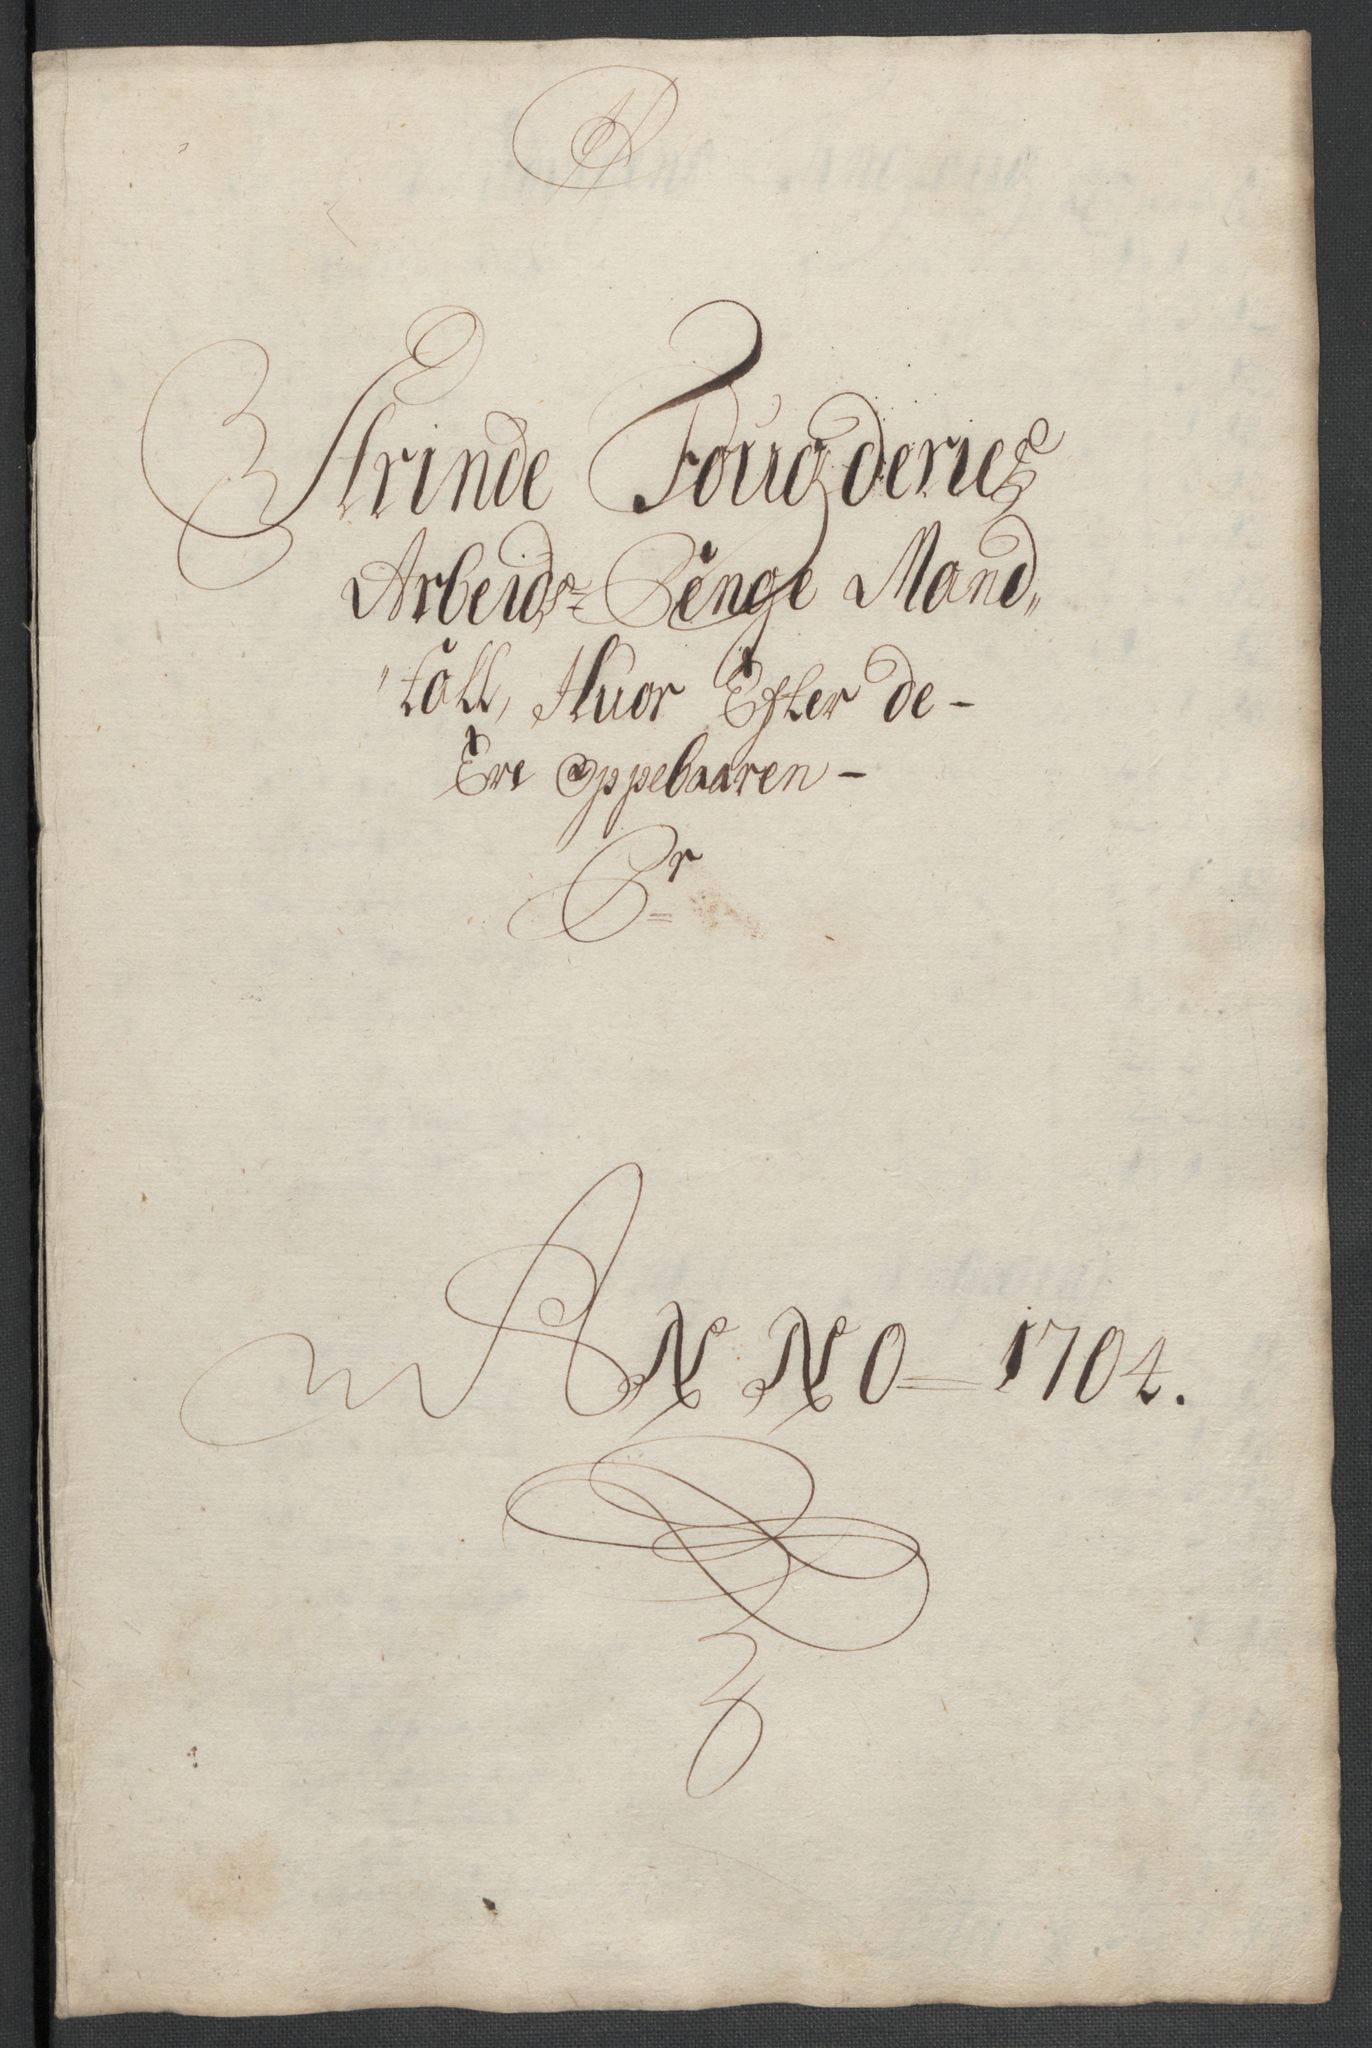 Strinde Fougderies
Arbeids-Penge Mand„
„tall, Huor Efter de-
Ere oppebaaren-
Pr
ANNO=1704.